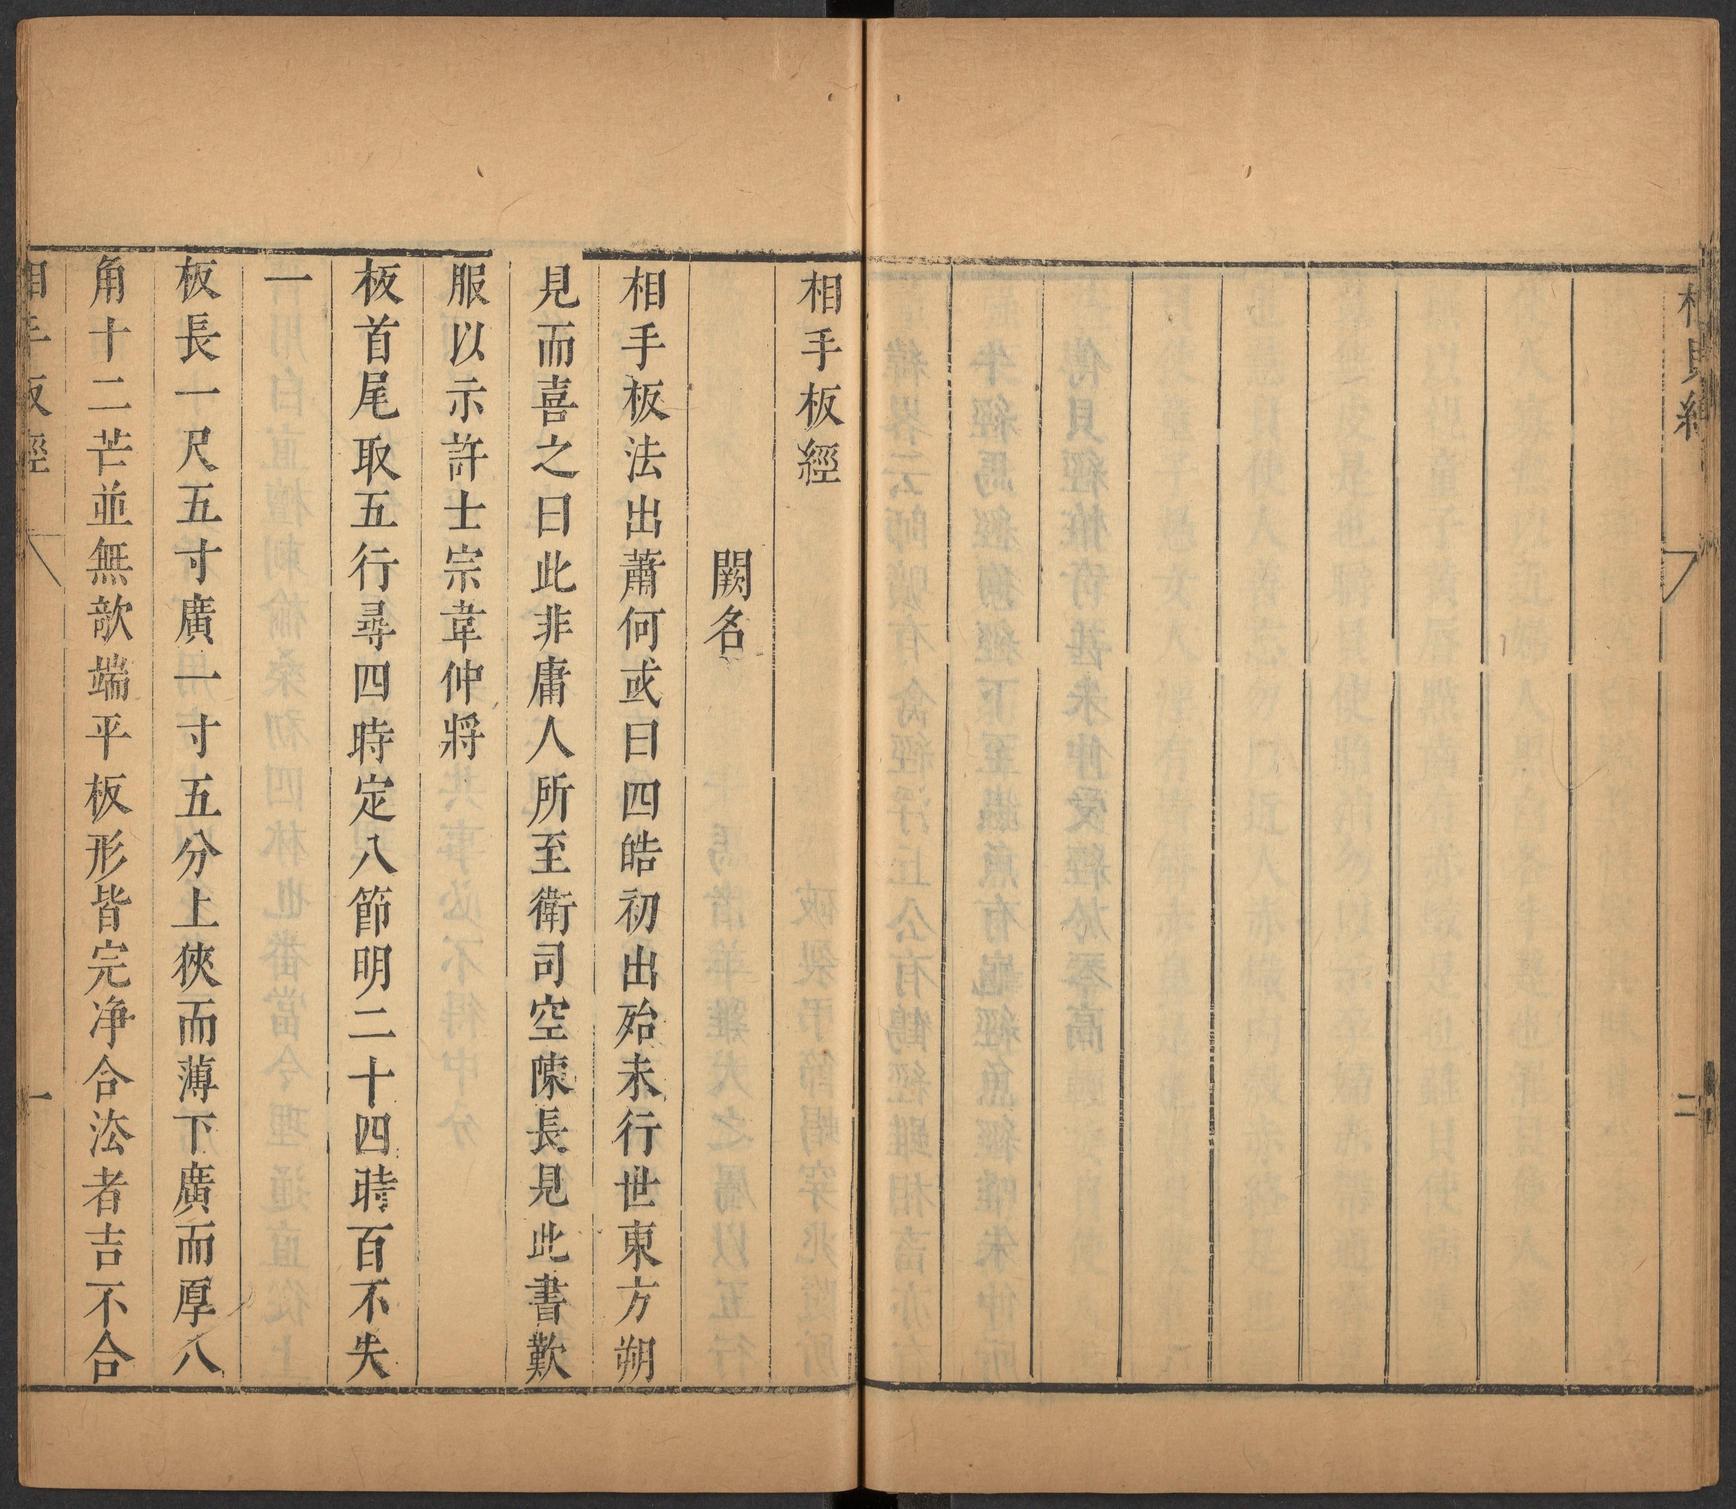 相貝經
二
相手板經
闕名
相手板法出蕭何或曰四皓初出殆未行世東方朔
見而喜之曰此非庸人所至衛司空陳長見此書歎
服以示許士宗韋仲將
板首尾取五行尋四時定八節明二十四時百不失
一
板長一尺五寸廣一寸五分上狹而薄下廣而厚八
角十二芒並無欹端平板形皆完净合法者吉不合
相手板經
一